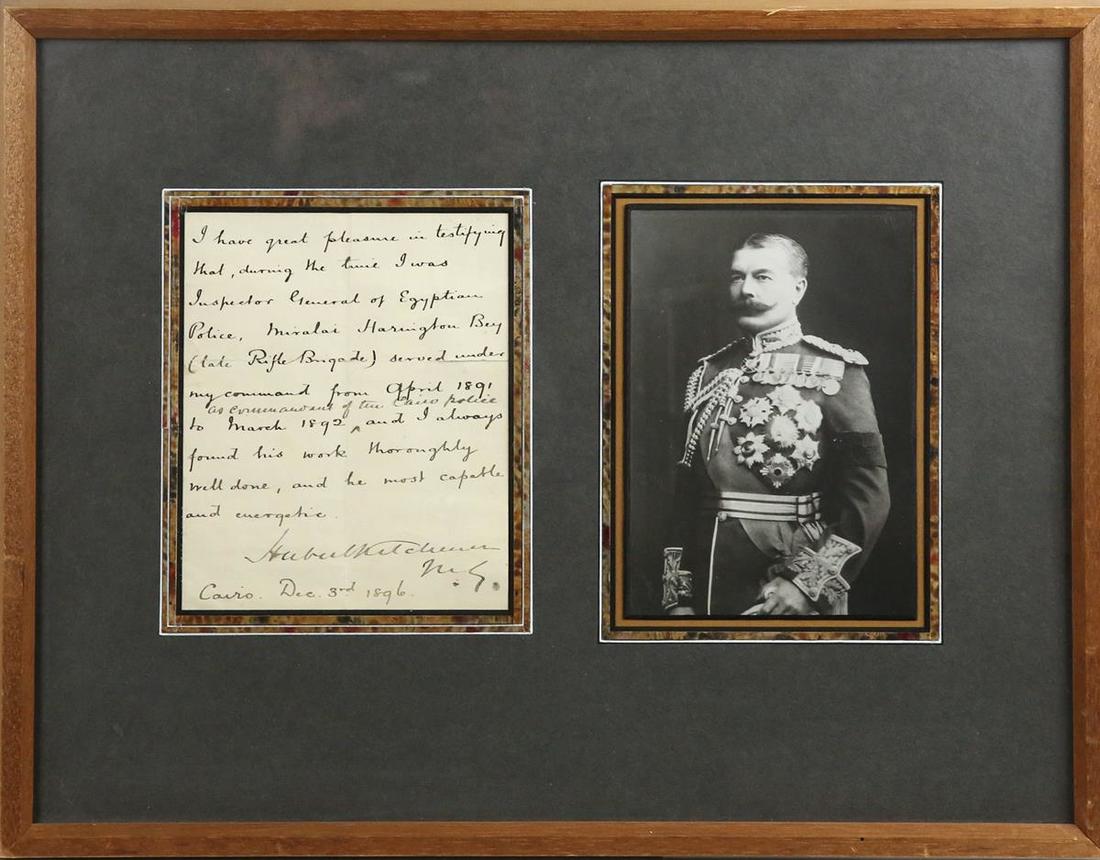 I have great pleasure in testifying
that, during the time I was
Inspector General of Egyptian
Police, Miralai Harington Bey
(late Rifle Brigade) served under
my command from April 1891
as commandant of the Cairo police
to March 1892 ^ and I always
found his work thoroughly
well done, and he most capable
and energetic.
Herbert Kitchener
M.G.
Cairo. Dec. 3rd 1896.